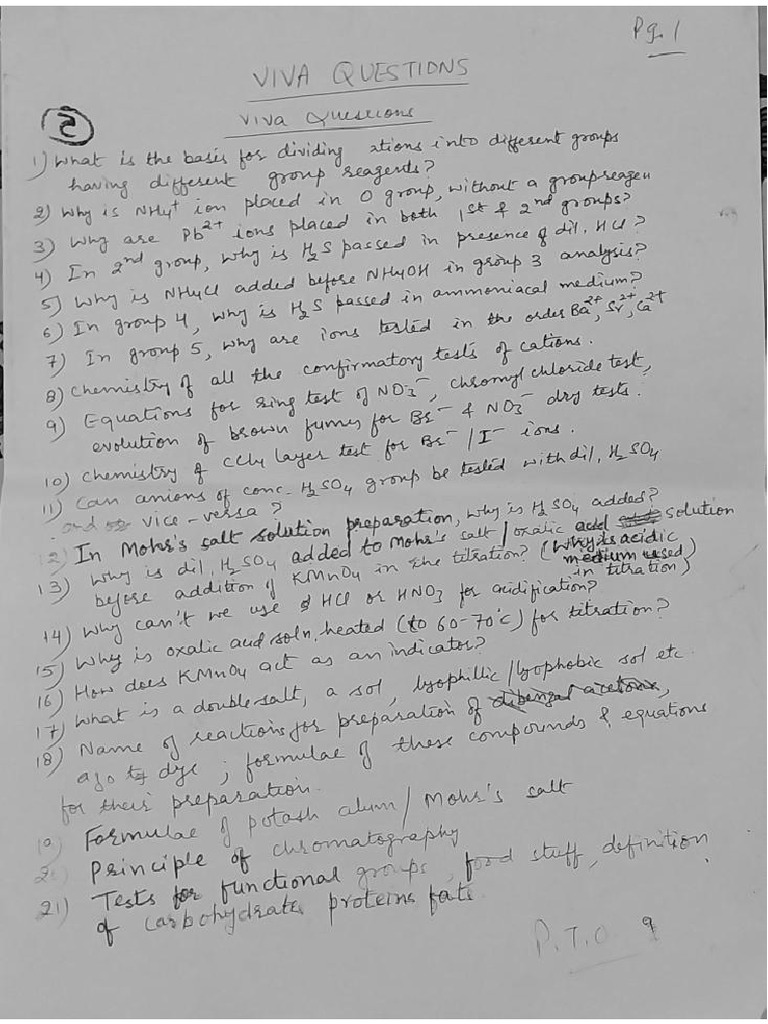 Pg. 1
VIVA QUESTIONS
Viva Questions
2
1) What is the basis for dividing ations into different groups
having different group reagents?
2) Why is NH4+ ion placed in 0 group, without a group reagen
3) Why are Pb2+ ions placed in both 1st & 2nd groups?
4) In 2nd group, why is H2S passed in presence of dil. HCl?
5) Why is NH4Cl added before NH4OH in group 3 analysis?
6) In group 4, why is H2S passed in ammoniacal medium?
7) In group 5, why are ions tested in the order Ba2+, Sr2+, Ca2+
8) Chemistry of all the confirmatory tests of cations.
9) Equations for ring test of NO3-, chromyl chloride test,
evolution of brown fumes for Br- & NO3- dry tests.
10) Chemistry of CCl4 layer test for Br- / I- ions.
11) Can anions of conc. H2SO4 group be tested with dil, H2SO4
and vice-versa?
12) In Mohr's salt solution preparation, why is H2SO4 added?
13) Why is dil, H2SO4 added to Mohr's salt / oxalic acid solution
before addition of KMnO4 in the titration? (Why is acidic
medium used
in titration)
14) Why can't we use HCl or HNO3 for acidification?
15) Why is oxalic acid soln. heated (to 60-70°C) for titration?
16) How does KMnO4 act as an indicator?
17) What is a double salt, a sol, lyophillic/lyophobic sol etc.
18) Name of reactions for preparation of dibenzal acetone,
azo dye ; formulae of these compounds & equations
for their preparation.
19) Formulae of potash alum / Mohr's salt
20) Principle of chromatography
21) Tests for functional groups, food stuff, definition
of carbohydrate, proteins fats
P.T.O